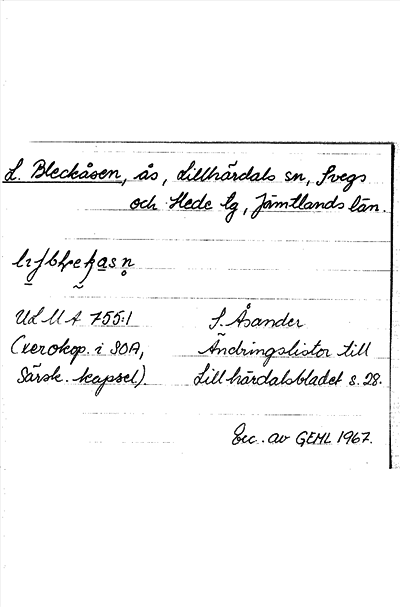 L. Bleckåsen, ås, Lillhärdals sn, Svegs
och Hede tg, Jämtlands län.
ULMA 755:1
(xerokop. i SOA,
Särsk. kapsel).
S. Åsander
Ändringslistor till
Lillhärdalsbladet s. 28.
Exc. av GEML 1967.